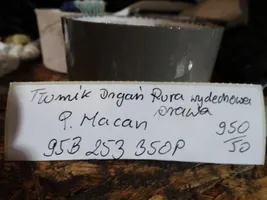 Tłumik Drgań Rura wydechowa
prawa
P. Macan
950/50
95B 253 350P